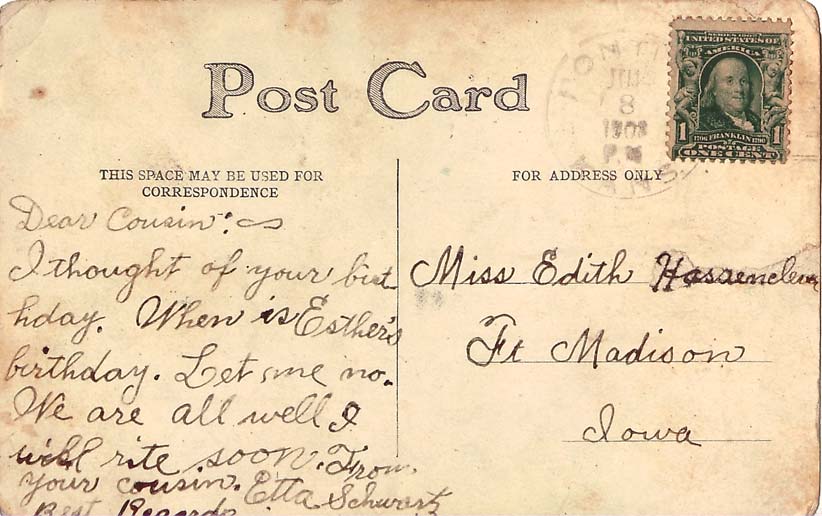 Post Card
THIS SPACE MAY BE USED FOR
CORRESPONDENCE
Dear Cousin:
I thought of your birt
hday. When is Esther's
birthday. Let me no.
We are all well I
will rite soon. From
your cousin. Etta Schwartz
Best Regards
FOR ADDRESS ONLY
Miss Edith
Ft Madison
Iowa
8
P.M
SERIES 1902
UNITED STATES OF
AMERICA
1 1706 FRANKLIN 1790 1
POSTAGE
ONE CENT